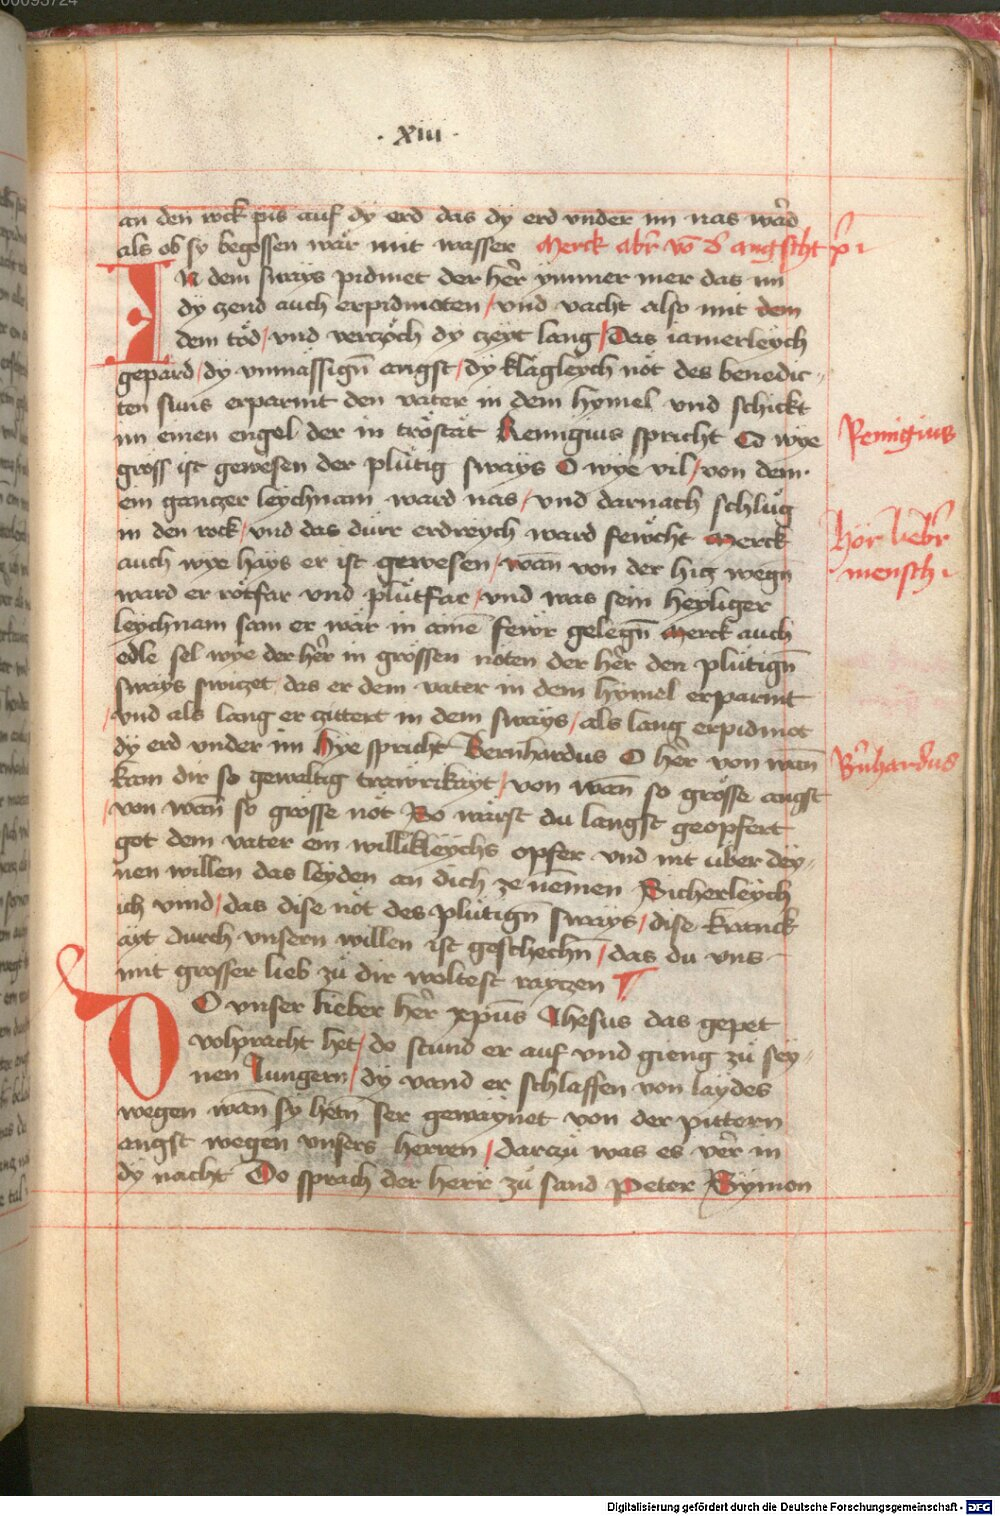 00093724
· xiii ·
an den rock pis auf dy erd das dy erd vnder im nas wa᷑rd
als ob sy begossen wär mit wasser Merck ab᷑ vō d᷑ angscht χ᷑i
In dem sways pidmet der he᷑r ymmer mer das im
dy zend auch erpidmoten / vnd vacht also mit dem
dem töd / vnd verczoch dy czeyt lang / Das iamerleych
gepard / dy vnmässign̄ angst / dy klägleych nöt des benedic⸗
ten suns erparmt den vater in dem hymel vnd schickt
im einen engel der in tröstät Remigius spricht O wye
gross ist gewesen der plütig sways O wye vil / von dem
ein ganczer leychnam ward nas / vnd darnach schlůg
in den rock / vnd das dürr erdreych ward fewcht Merck
auch wye hays er ist gewesen / wan̄ von der hicz wegn̄
ward er rötfar vnd plůtfar / vnd was sein heyliger
leychnam sam er wär in aine᷑ fewr gelegn̄ Merck auch
edle sel wye der he᷑r in grossen nöten der he᷑r den plütign̄
sways swiczet das er dem vater in dem hymel erparmt
/ vnd als lang er czittert in dem sways / als lang erpidmet
dy erd vnder im Hye spricht Bernhardus O he᷑r von wan̄
kam dir so gewaltig trawrikayt / von wan̄ so grösse angst
/ von wan̄ so grösse nöt Bo wärst du langst geopfert
got dem vater ein willikleychs opfer vnd nit uber dey⸗
nen willen das leyden an dich ze nemen Sicherleych
ich vind / das dise nöt des plütign̄ sways / dise kranck
ayt durch vnsern willen ist geschechn̄ / das du vns
mit grosser lieb zů dir woltest rayczen
DO vnser lieber he᷑r xpūs Jhesus das gepet
volpracht het / do stund er auf vnd gieng zů sey⸗
nen Jungern / dy vand er schlaffen von laydes
wegen wan̄ sy hetn̄ ser gewaynet von der pittern
angst wegen vnsers herren / darczů was es ve᷑r in
dy nacht Do sprach der herr zů sand Peter Symon
Remigius
Hör lieb᷑r
mensch
B᷑nhardus
Digitalisierung gefördert durch die Deutsche Forschungsgemeinschaft - DFG